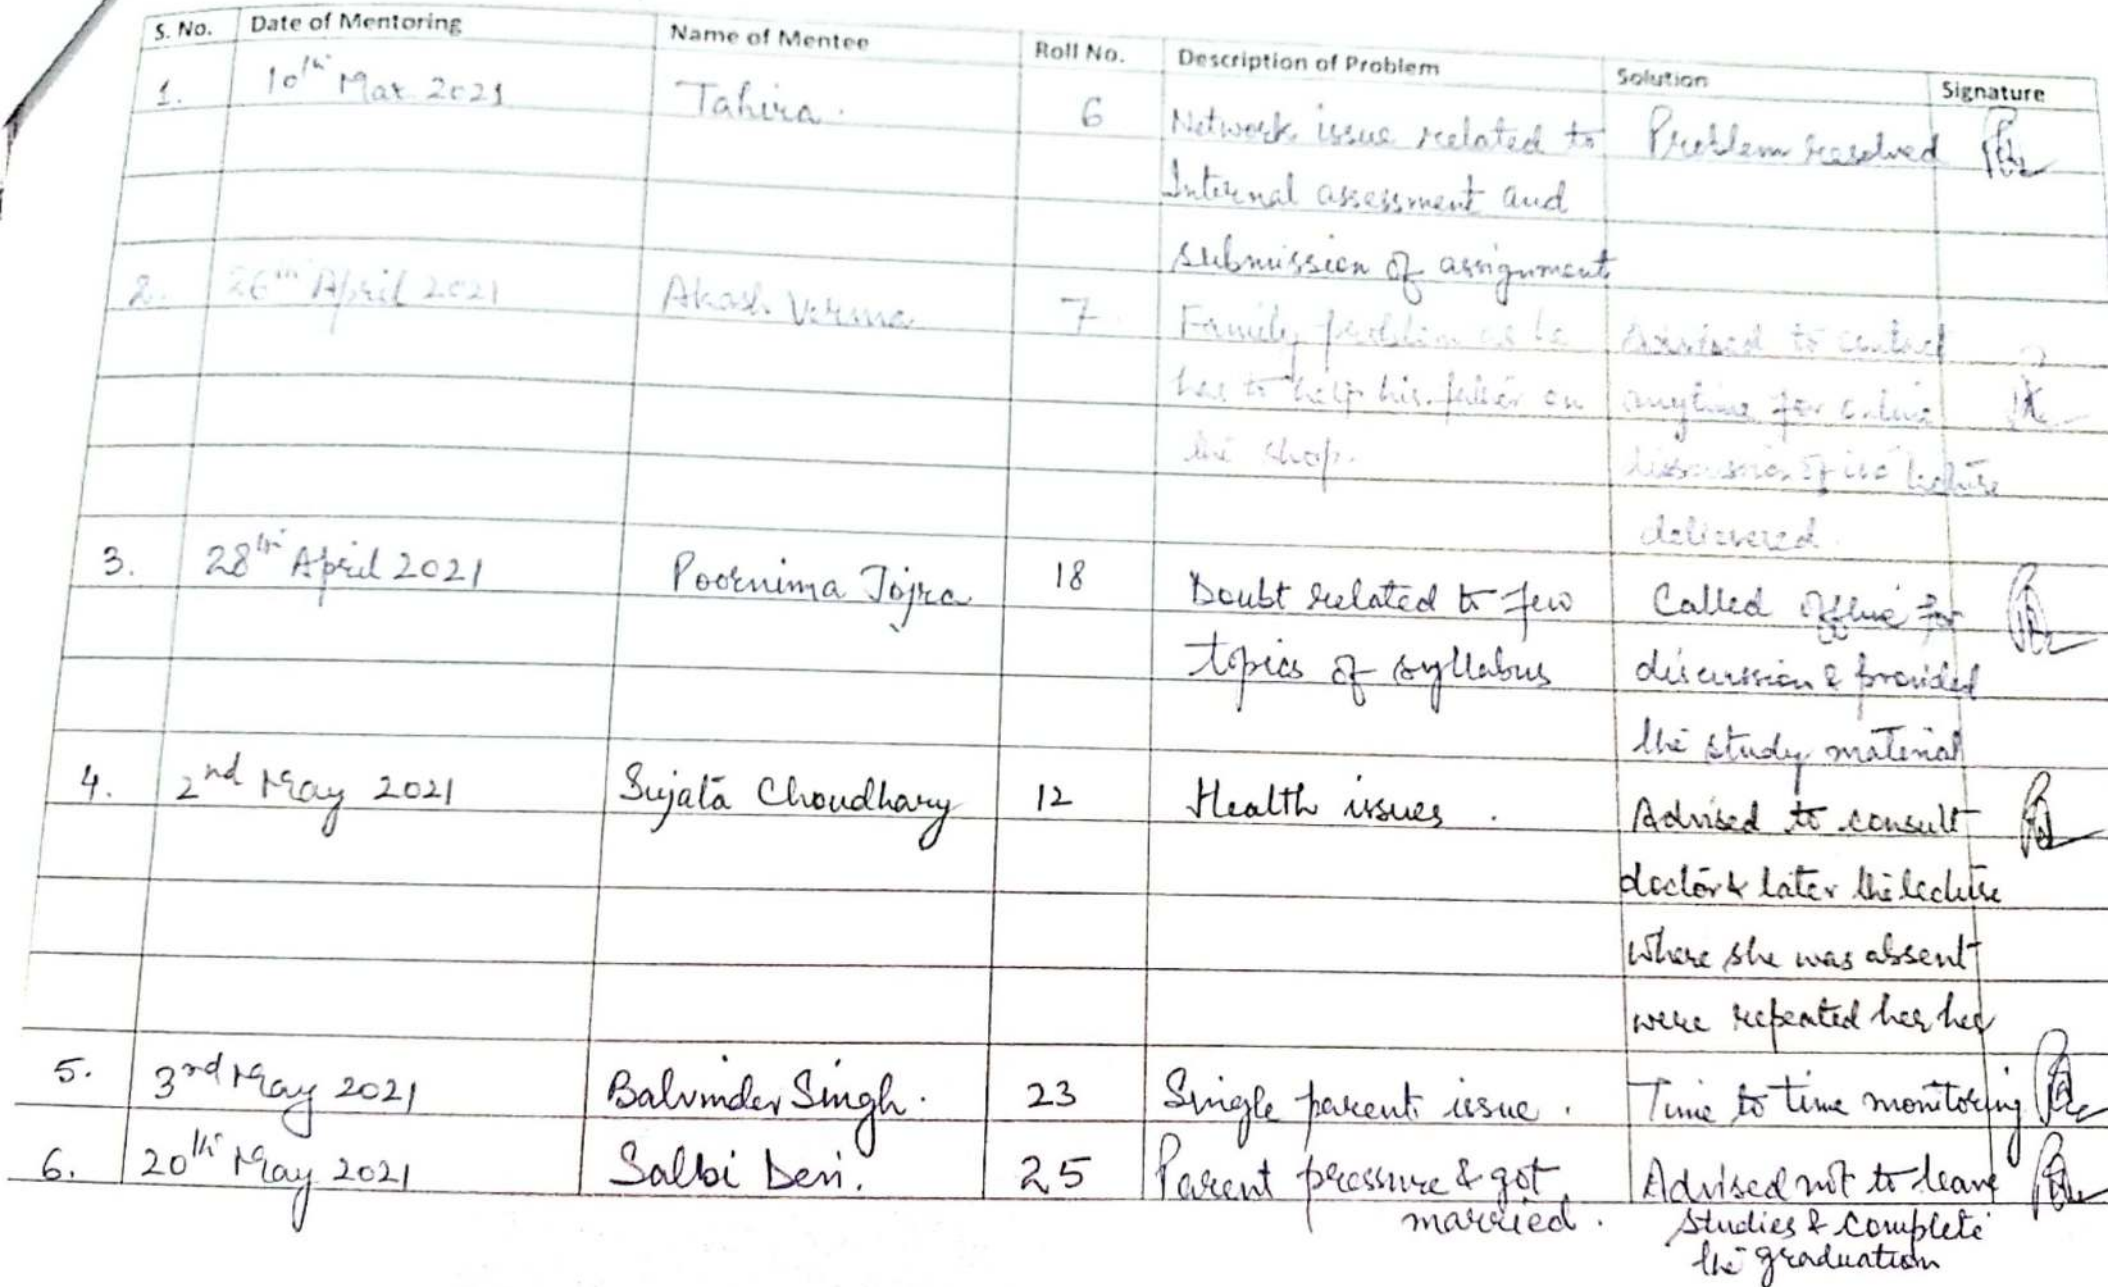 S. No. Date of Mentoring Name of Mentee Roll No. Description of Problem Solution Signature
1. 10th Mar 2021 Tahira. 6 Network issue related to Problem resolved
Internal assessment and
submission of assignment
2. 26th April 2021 Akash Verma 7 Family problem as he Advised to contact
has to help his father on anytime for online
the shop. discussion of the lecture
delievered.
3. 28th April 2021 Poornima Jojra 18 Doubt related to few Called offline for
topics of syllabus discussion & provided
the study material
4. 2nd May 2021 Sujata Choudhary 12 Health issues . Advised to consult
doctor & later the lecture
where she was absent
were repeated her her
5. 3rd May 2021 Balvinder Singh. 23 Single parent issue . Time to time monitoring
6. 20th May 2021 Salbi Devi. 25 Parent pressure & got Advised not to leave
married . studies & complete
the graduation